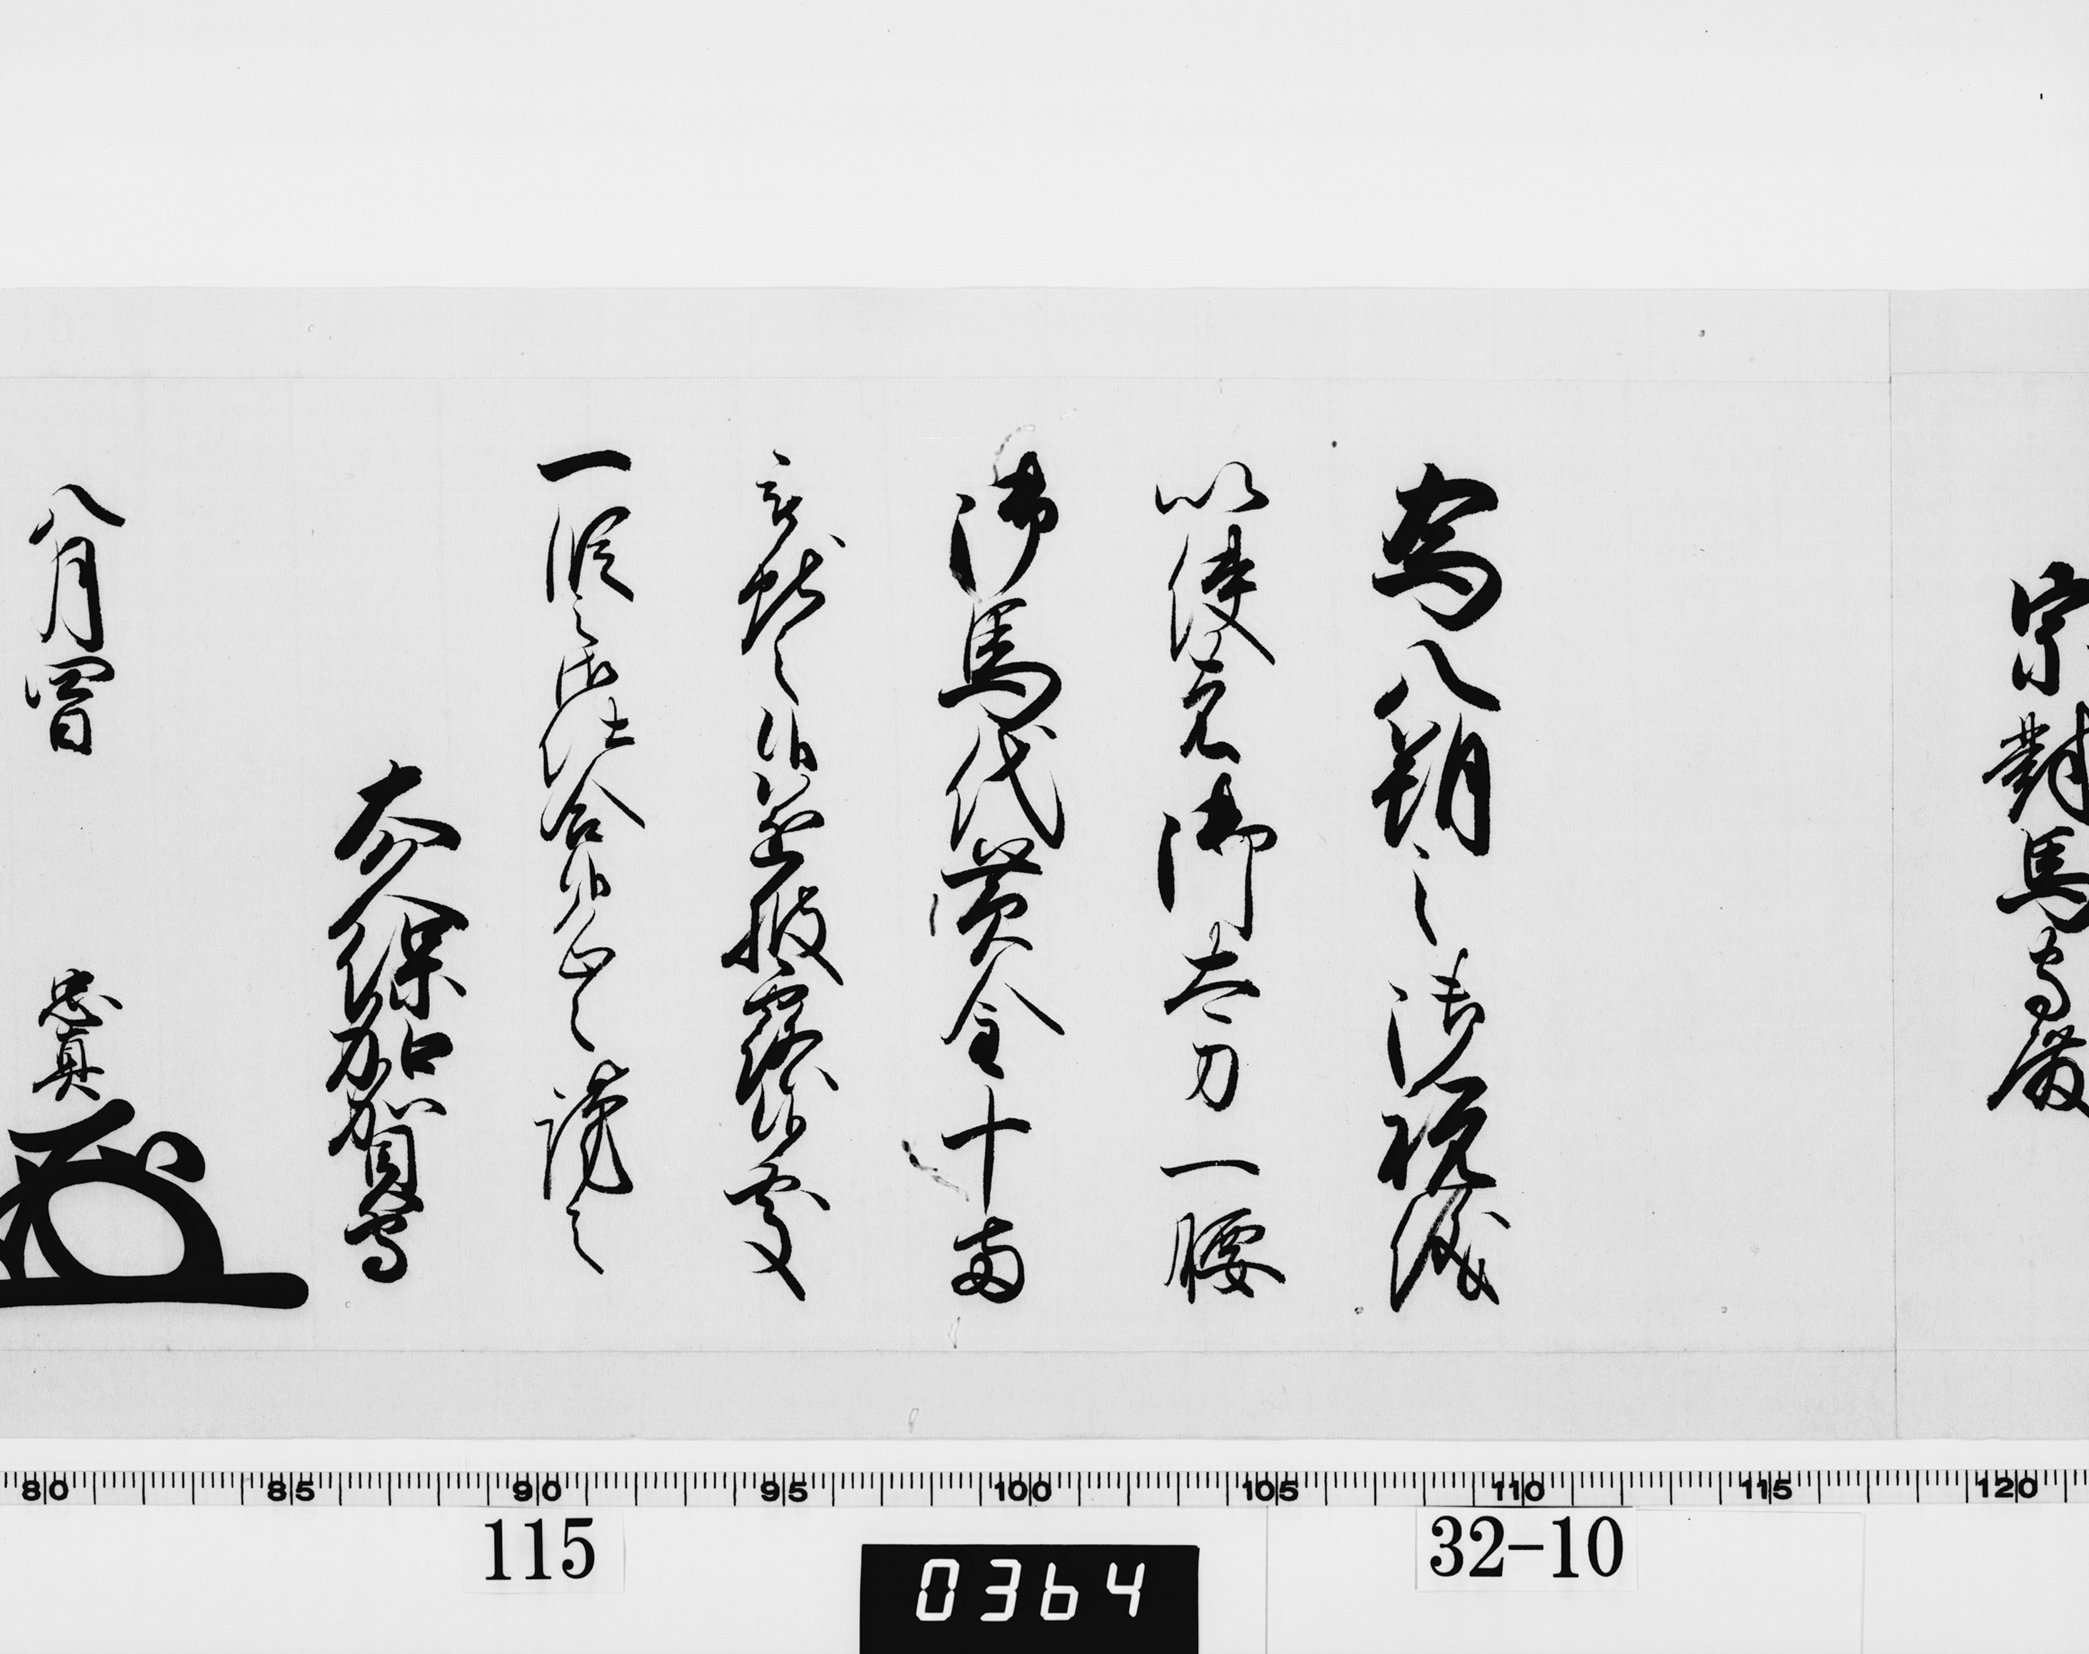 宗對馬守殿
為八朔之御祝儀
以使者御太刀一腰
御馬代黄金十両
被献之候遂披露候處
一段之御仕合候恐々謹言
大久保加賀守
八月四日 忠真
80 85 90 95 100 105 110 115 120
115
32-10
0364